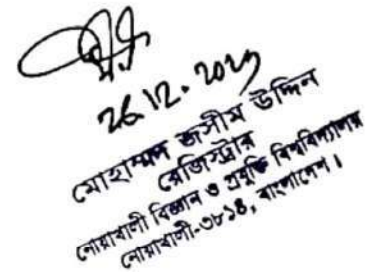 26.12.2023
মোহাম্মদ জসীম উদ্দিন
রেজিস্ট্রার
নোয়াখালী বিজ্ঞান ও প্রযুক্তি বিশ্ববিদ্যালয়
নোয়াখালী-৩৮১৪, বাংলাদেশ।